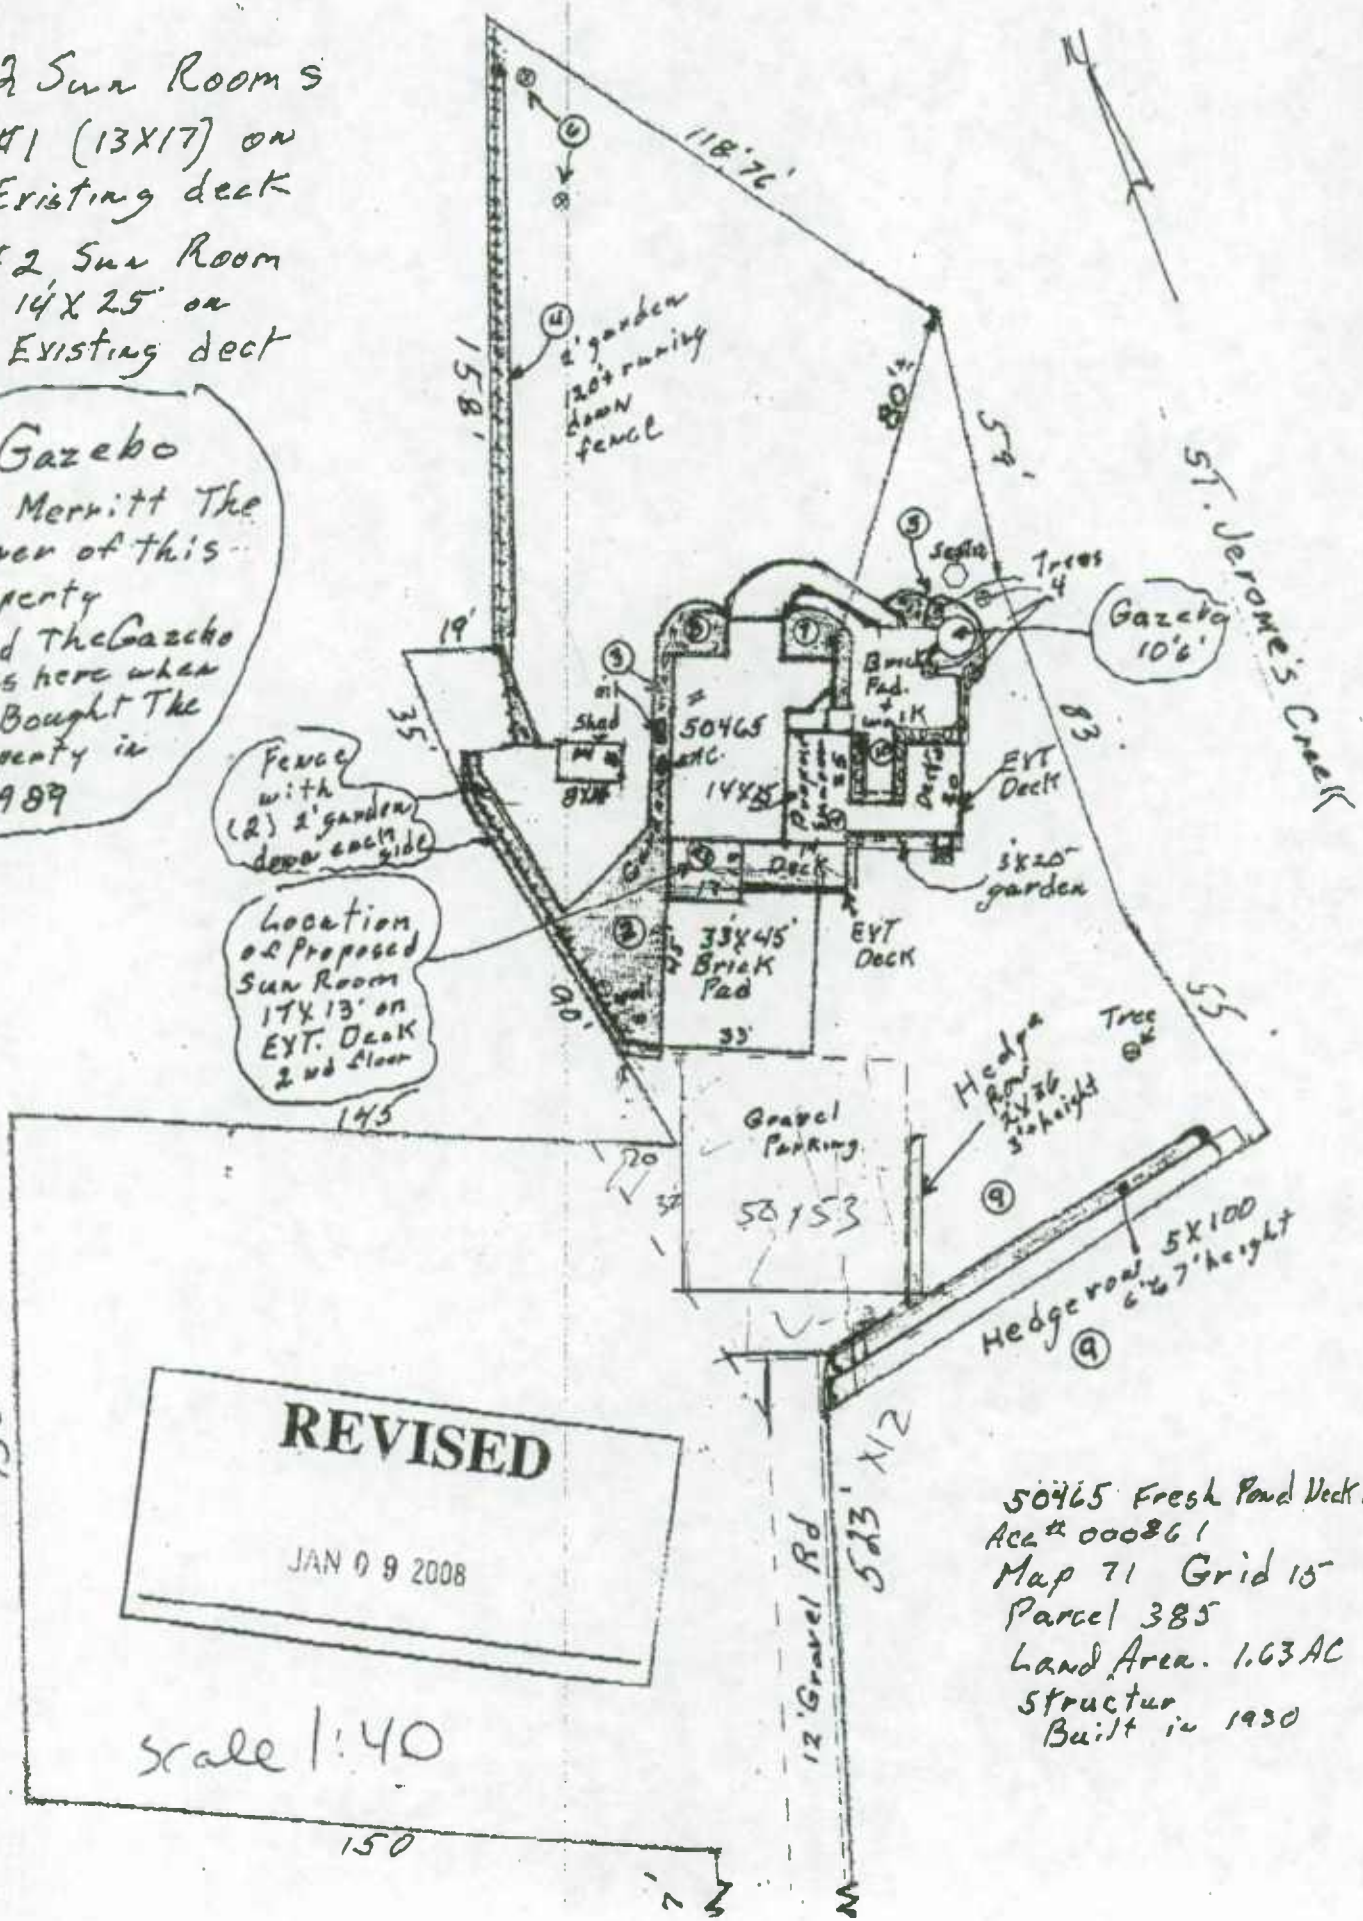 2 Sun Rooms
#1 (13X17) on
Existing deck
#2 Sun Room
14X25' on
Existing deck
Gazebo
Merritt The
of this
The Gazebo
here when
Bought The
in
N
118'76'
158'
4
2' garden
120' running
down
fence
80'
54'
St. Jerome's Creek
Trees
4
Gazebo
10'6'
83
19'
35'
Shed
8X14
oil
#
50465
AC.
Brick
Pad.
EXT
Deck
3'X20'
garden
Fence
with
(2) 2' garden
down each
side
Location
of Proposed
Sun Room
17X13' on
EXT. Deck
2nd floor
Deck
EXT
Deck
2
33'X45'
Brick
Pad
33'
90'
55
Tree
Hedge
3' height
9
145
20
Gravel
Parking
50X53
Hedge row 5X100
6' to 7' height
9
REVISED
JAN 09 2008
Scale 1:40
150
12' Gravel Rd
523' X12
50465 Fresh Pond Neck
Acc # 000861
Map 71 Grid 15
Parcel 385
Land Area. 1.63 AC
Structur
Built in 1930